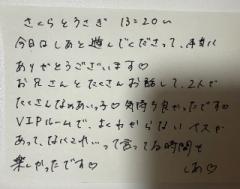 さくらとうさぎ 13=20〜
今日はしあと遊んでくださって、本当に
ありがとうございます♡
お兄さんとたくさんお話して、2人で
たくさんなめあいっこ♡気持ち良かったです♡
VIPルームで、よくわからないイスが
あって、なにこれいって言ってる時間も
楽しかったです♡
しあ♡